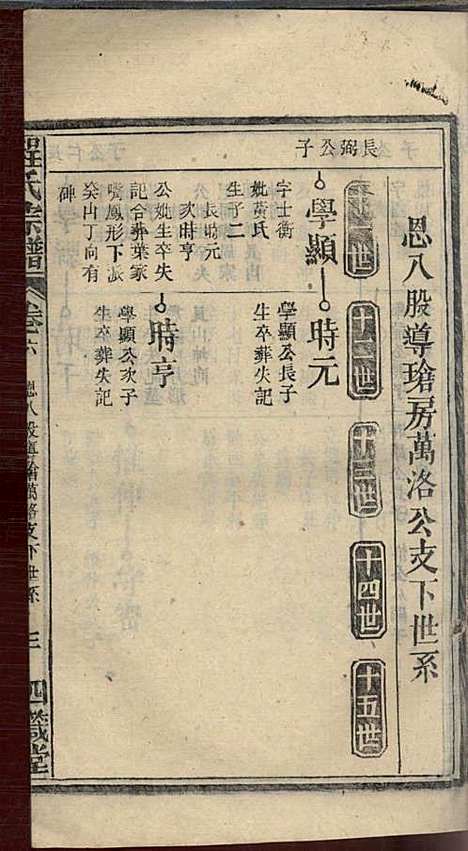 恩八股導瑲房萬洛公支下世系
十一世
十二世
十三世
十四世
十五世
長弼公子
學顯
字士衡
妣黃氏
生子二
長時元
次時亨
公妣生卒失
記合葬葉家
嘴鳳形下派
癸山丁向有
碑
時元
學顯公長子
生卒葬失記
時亨
學顯公次子
生卒葬失記
程氏宗譜
卷六
恩八股導瑲萬洛支下世系
三